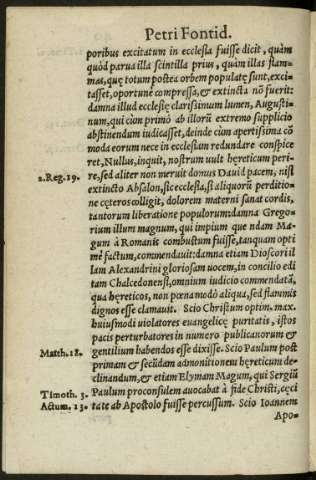 Petri Fontid.
poribus excitatum in ecclesia fuisse dicit, quàm
quòd parua illa scintilla prius, quàm illas flam-
mas, quę totum postea orbem populatę sunt, exci-
tasset, oportunè compressa, & extincta nō fuerit:
damna illud ecclesię clarissimum lumen, Augusti-
num, qui cùm primò ab illorū extremo supplicio
abstinendum iudicasset, deinde cùm apertissima cō
moda eorum nece in ecclesiam redundare conspice
ret, Nullus, inquit, nostrum uult hęreticum peri-
2.Reg.19. re, sed aliter non meruit domus Dauid pacem, nisi
extincto Absalon, sic ecclesia, si aliquorū perditio-
ne cęteros colligit, dolorem materni sanat cordis,
tantorum liberatione populorum: damna Grego-
rium illum magnum, qui impium quendam Ma-
gum à Romanis combustum fuisse, tanquam opti
mè factum, commendauit: damna etiam Dioscori il
lam Alexandrini gloriosam uocem, in concilio edi
tam Chalcedonensi, omnium iudicio commendatā,
qua hęreticos, non pœna modò aliqua, sed flammis
dignos esse clamauit. Scio Christum optim. max.
huiusmodi uiolatores euangelicę puritatis, istos
pacis perturbatores in numero publicanorum &
Matth.18. gentilium habendos esse dixisse. Scio Paulum post
primam & secūdam admonitionem hęreticum de-
clinandum, & etiam Elymam Magum, qui Sergiū
Timoth. 3. Paulum proconsulem auocabat à fide Christi, cęci
Actum. 13. tate ab Apostolo fuisse percussum. Scio Ioannem
Apo-